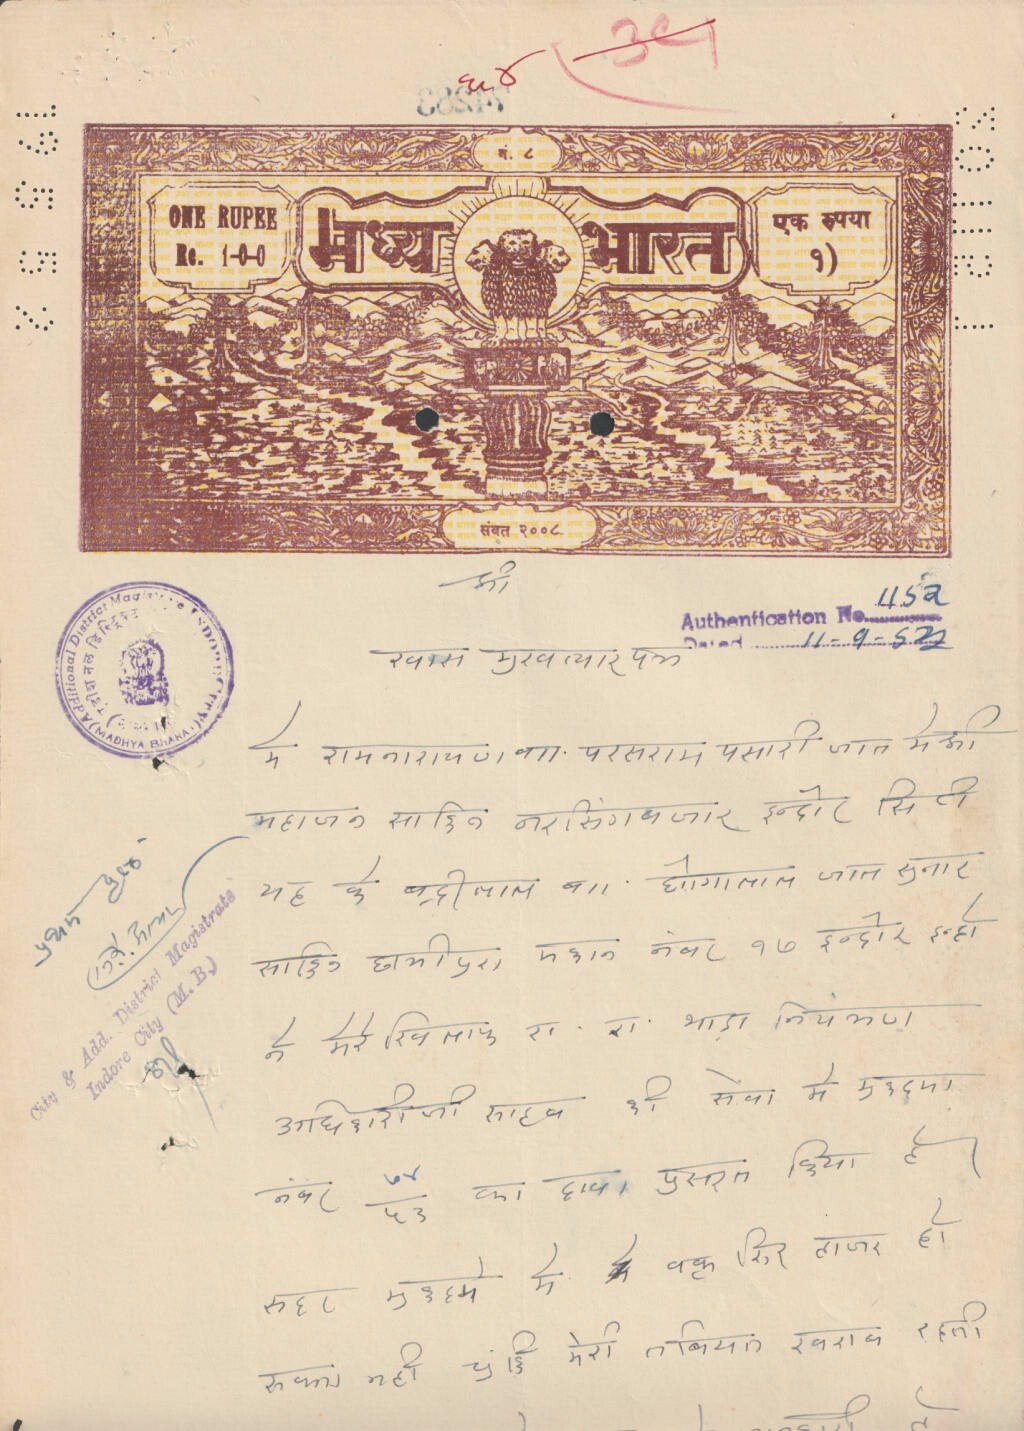 ३९
74283
न. ८
ONE RUPEE
Re. 1-0-0
मध्य भारत
एक रुपया
१)
संवत २००८
श्री
Authentication No. 1152
Dated 11-9-52
Additional District Magistrate INDORE CITY
(MADHYA BHARAT)
खास मुखत्यार पत्र
मे रामनारायण वा. परसराम पसारी जात मेश्री
महाजन साकिन नरसिंगबजार इन्दौर सिटी
यह के बद्रीलाल वा. घोगालाल जात सुनार
साकिन छत्रीपुरा मकान नंबर १७ इन्दौर इन्हो
ने मेरे खिलाफ रा. रा. भाड़ा नियंत्रण
अधिकारीजी साहब की सेवा मे मुकदमा
नंबर ७४/५३ का दावा प्रसतुत किया है।
सदर मुकदमे मे मे वक्त सिर हाजर हो
सकता नही चुंकि मेरी तबियत खराब रहती
City & Add. District Magistrate
Indore City (M. B.)